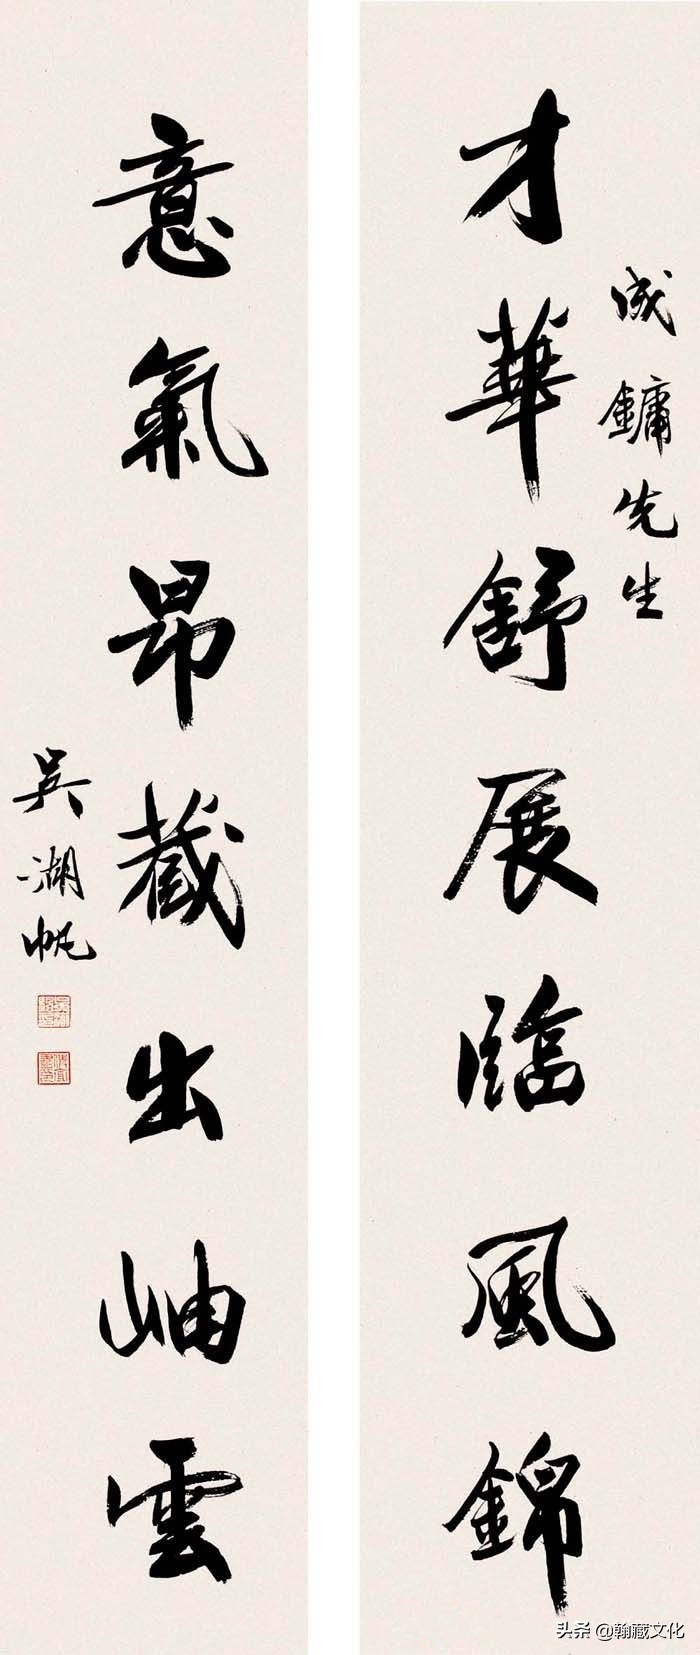 才華舒展臨風錦
成鏞先生
意氣昂藏出岫雲
吳湖帆
头条 @翰藏文化